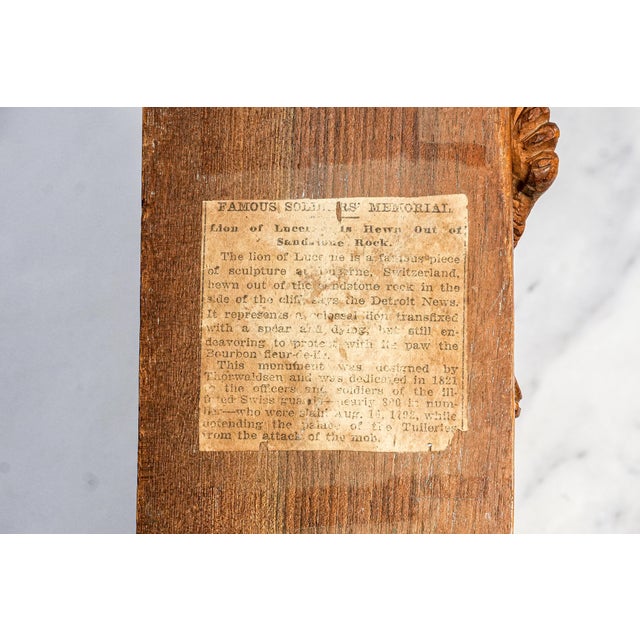 FAMOUS SOLDIERS' MEMORIAL
Lion of Lucerne is Hewn Out of
Sandstone Rock.
The lion of Lucerne is a famous piece
of sculpture at Lucerne, Switzerland,
hewn out of the sandstone rock in the
side of the cliff, says the Detroit News.
It represents a colossal lion transfixed
with a spear and dying, but still en-
deavoring to protect with its paw the
Bourbon fleur-de-lis.
This monument was designed by
Thorwaldsen and was dedicated in 1821
to the officers and soldiers of the ill-
fated Swiss guard nearly in num-
ber—who were slain Aug. while
defending the palace of the Tuileries
from the attack of the mob.